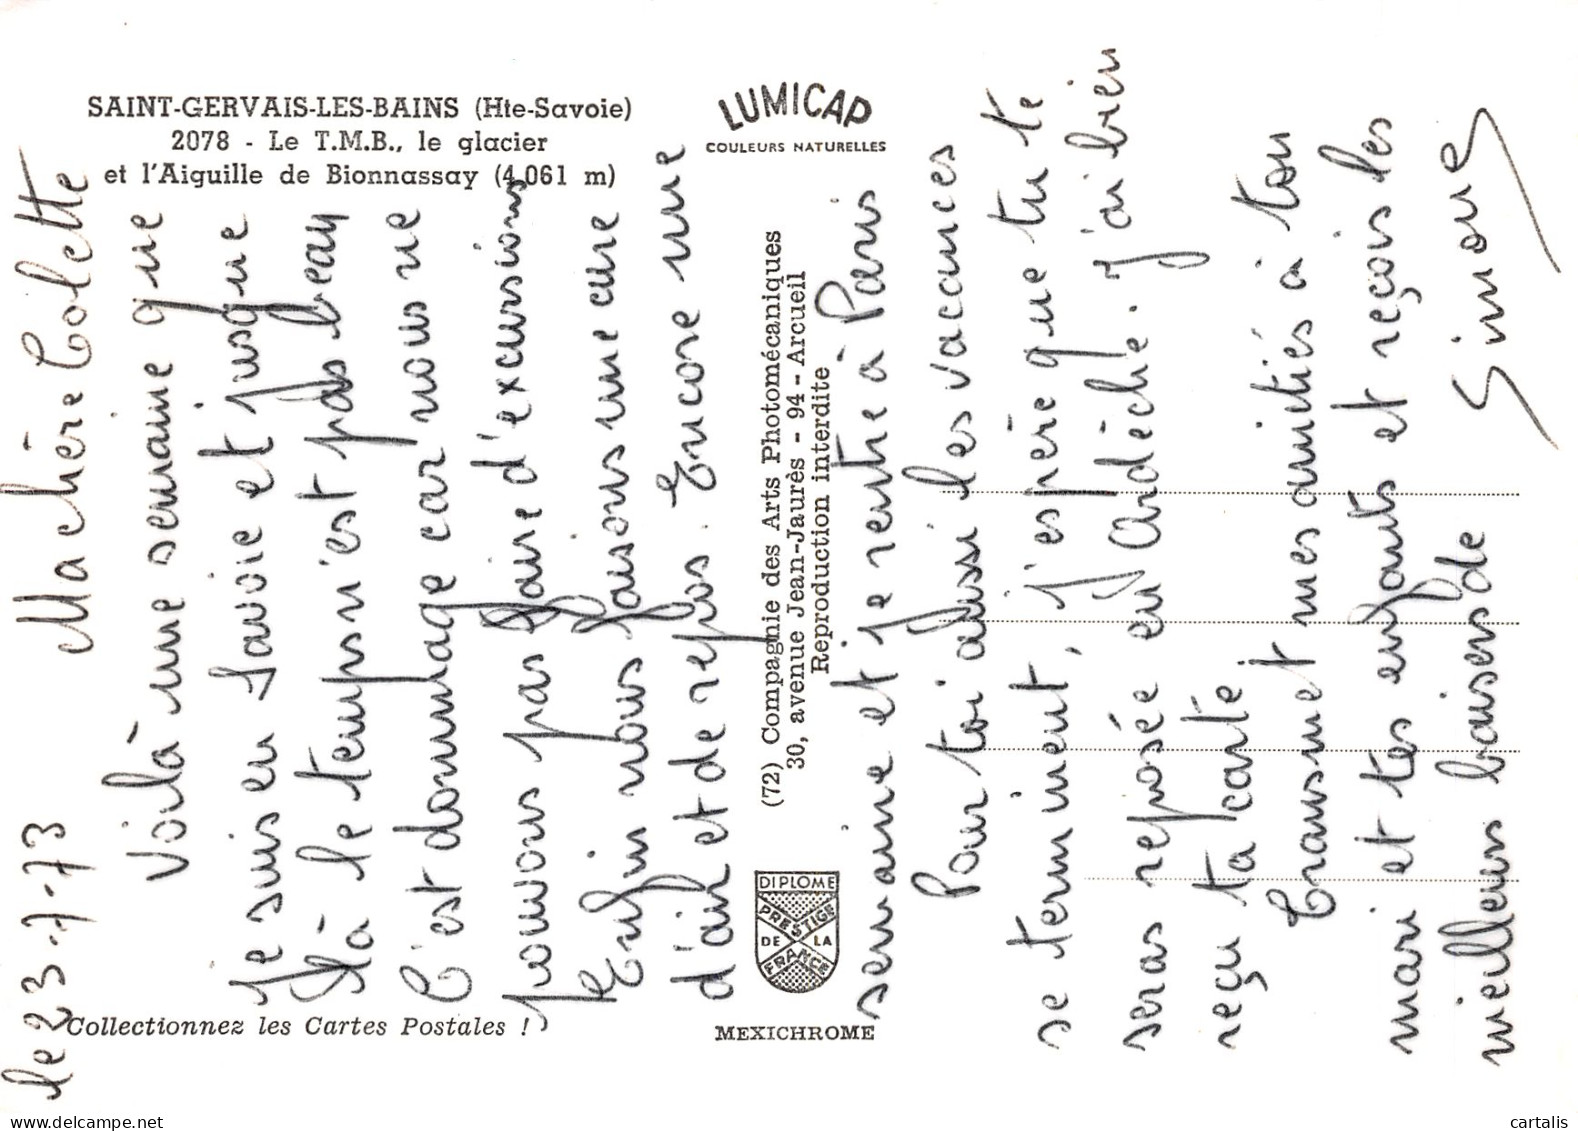 SAINT-GERVAIS-LES-BAINS (Hte-Savoie)
2078 - Le T.M.B., le glacier
et l'Aiguille de Bionnassay (4.061 m)
LUMICAP
COULEURS NATURELLES
(72) Compagnie des Arts Photomécaniques
30, avenue Jean-Jaurès - 94 - Arcueil
Reproduction interdite
DIPLOME
PRESTIGE
DE LA
FRANCE
Collectionnez les Cartes Postales !
MEXICHROME
le 23-7-73 Ma chère Colette
Voilà une semaine que
je suis en Savoie et jusque
là le temps n'est pas beau
C'est dommage car nous ne
pouvons pas faire d'excursions
Enfin nous faisons une cure
d'air et de repos. Encore une
semaine et je rentre à Paris
Pour toi aussi les vacances
se terminent, j'espère que tu te
seras reposée en Ardèche. J'ai bien
reçu ta carte
Transmet mes amitiés à ton
mari et tes enfants et reçois les
meilleurs baisers de Simone
cartalis
www.delcampe.net